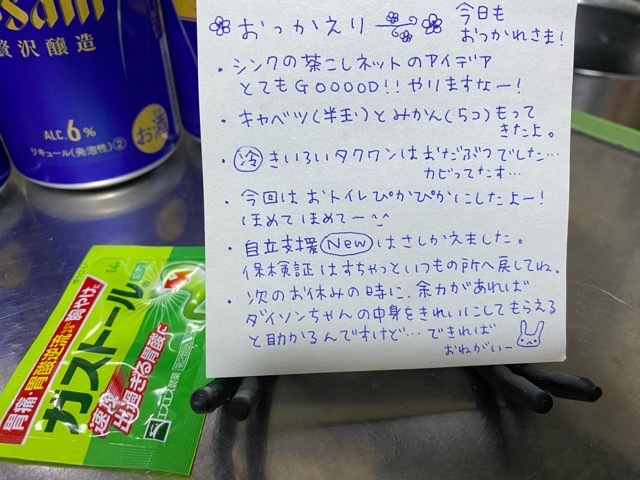 Asahi
贅沢醸造
ALC.6%
お酒
リキュール(発泡性)②
おっかえり
今日も
おつかれさま!
・シンクの茶こしネットのアイデア
とてもGOOOOD!! やりますなー!
・キャベツ(半玉)とみかん(5コ)もって
きたよ。
・冷 きいろいタクワンはおだぶつでした…
カビってたす…
・今回はおトイレぴかぴかにしたよー!
ほめてほめてー
・自立支援 New はさしかえました。
保検証はすちゃっといつもの所へ戻してね。
・次のお休みの時に、余力があれば
ダイソンちゃんの中身をきれいにしてもらえる
と助かるんですけど…できれば
おねがいー
胃痛・胃酸逆流による胸やけに
ガストール
速攻
出過ぎる胃酸に
エスエス製薬